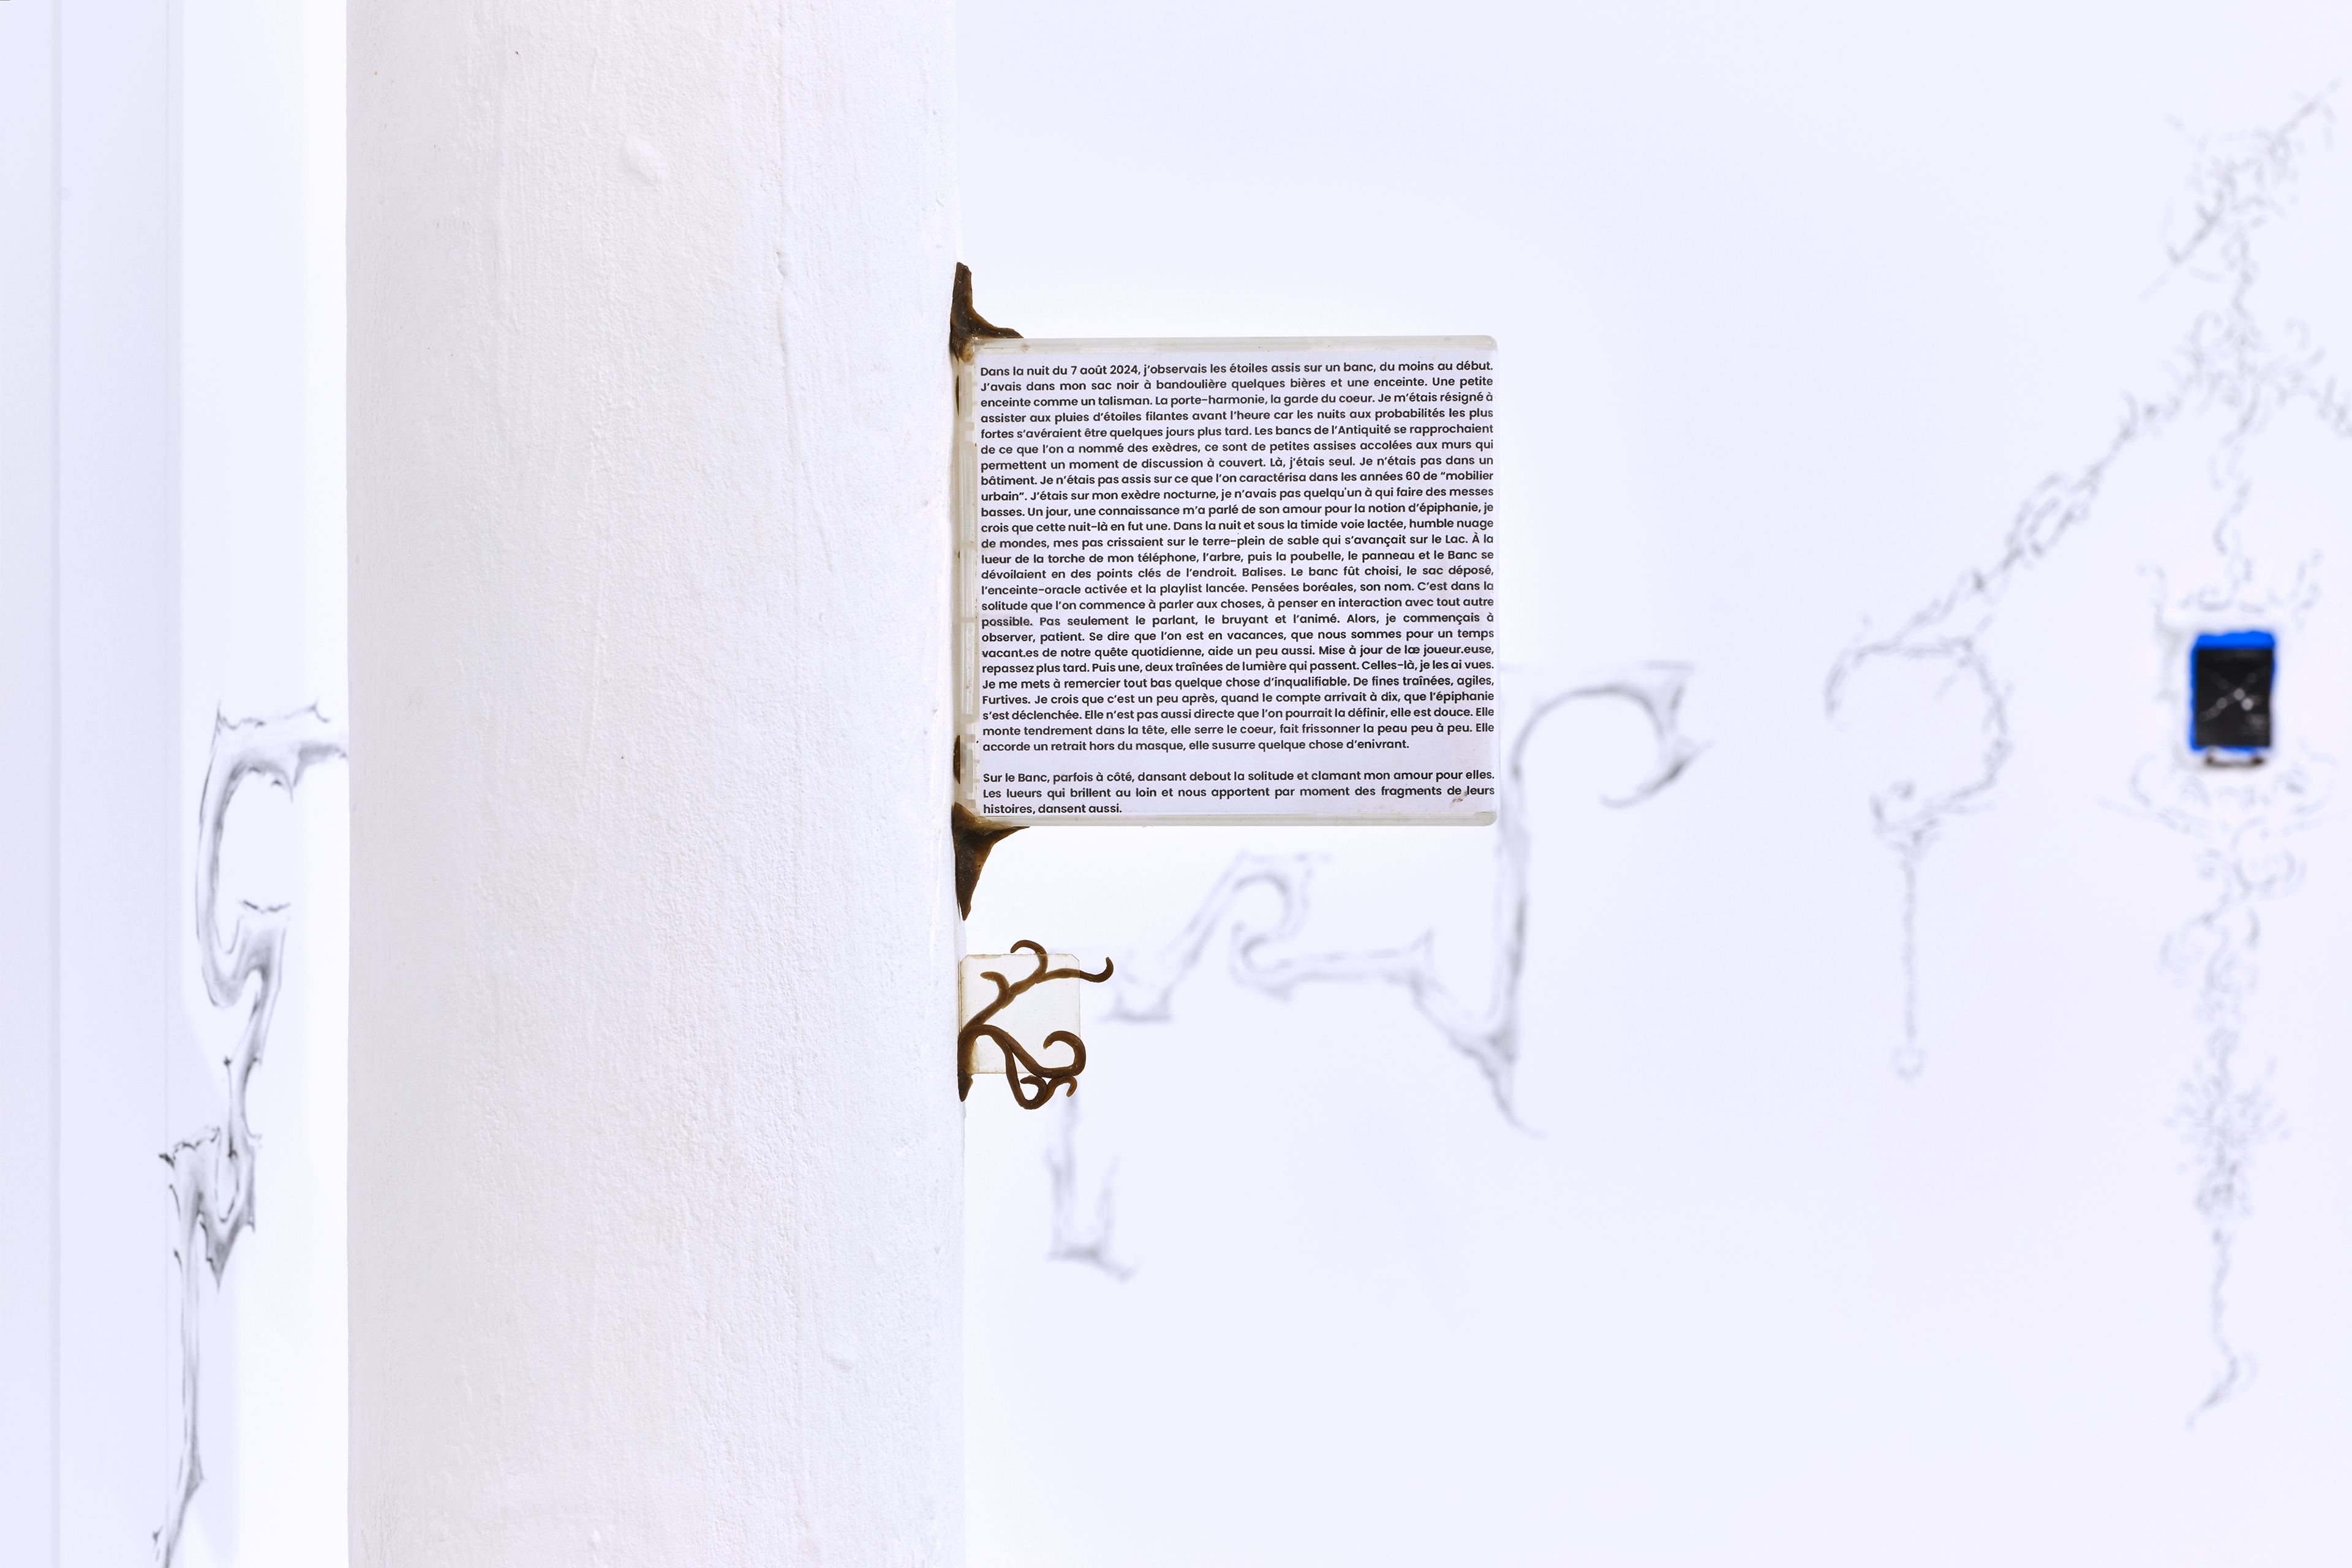 Dans la nuit du 7 août 2024, j'observais les étoiles assis sur un banc, du moins au début.
J'avais dans mon sac noir à bandoulière quelques bières et une enceinte. Une petite
enceinte comme un talisman. La porte-harmonie, la garde du coeur. Je m'étais résigné à
assister aux pluies d'étoiles filantes avant l'heure car les nuits aux probabilités les plus
fortes s'avéraient être quelques jours plus tard. Les bancs de l'Antiquité se rapprochaient
de ce que l'on a nommé des exèdres, ce sont de petites assises accolées aux murs qui
permettent un moment de discussion à couvert. Là, j'étais seul. Je n'étais pas dans un
bâtiment. Je n'étais pas assis sur ce que l'on caractérisa dans les années 60 de "mobilier
urbain". J'étais sur mon exèdre nocturne, je n'avais pas quelqu'un à qui faire des messes
basses. Un jour, une connaissance m'a parlé de son amour pour la notion d'épiphanie, je
crois que cette nuit-là en fut une. Dans la nuit et sous la timide voie lactée, humble nuage
de mondes, mes pas crissaient sur le terre-plein de sable qui s'avançait sur le Lac. À la
lueur de la torche de mon téléphone, l'arbre, puis la poubelle, le panneau et le Banc se
dévoilaient en des points clés de l'endroit. Balises. Le banc fût choisi, le sac déposé,
l'enceinte-oracle activée et la playlist lancée. Pensées boréales, son nom. C'est dans la
solitude que l'on commence à parler aux choses, à penser en interaction avec tout autre
possible. Pas seulement le parlant, le bruyant et l'animé. Alors, je commençais à
observer, patient. Se dire que l'on est en vacances, que nous sommes pour un temps
vacant.es de notre quête quotidienne, aide un peu aussi. Mise à jour de læ joueur.euse,
repassez plus tard. Puis une, deux traînées de lumière qui passent. Celles-là, je les ai vues.
Je me mets à remercier tout bas quelque chose d'inqualifiable. De fines traînées, agiles,
Furtives. Je crois que c'est un peu après, quand le compte arrivait à dix, que l'épiphanie
s'est déclenchée. Elle n'est pas aussi directe que l'on pourrait la définir, elle est douce. Elle
monte tendrement dans la tête, elle serre le coeur, fait frissonner la peau peu à peu. Elle
accorde un retrait hors du masque, elle susurre quelque chose d'enivrant.
Sur le Banc, parfois à côté, dansant debout la solitude et clamant mon amour pour elles.
Les lueurs qui brillent au loin et nous apportent par moment des fragments de leurs
histoires, dansent aussi.